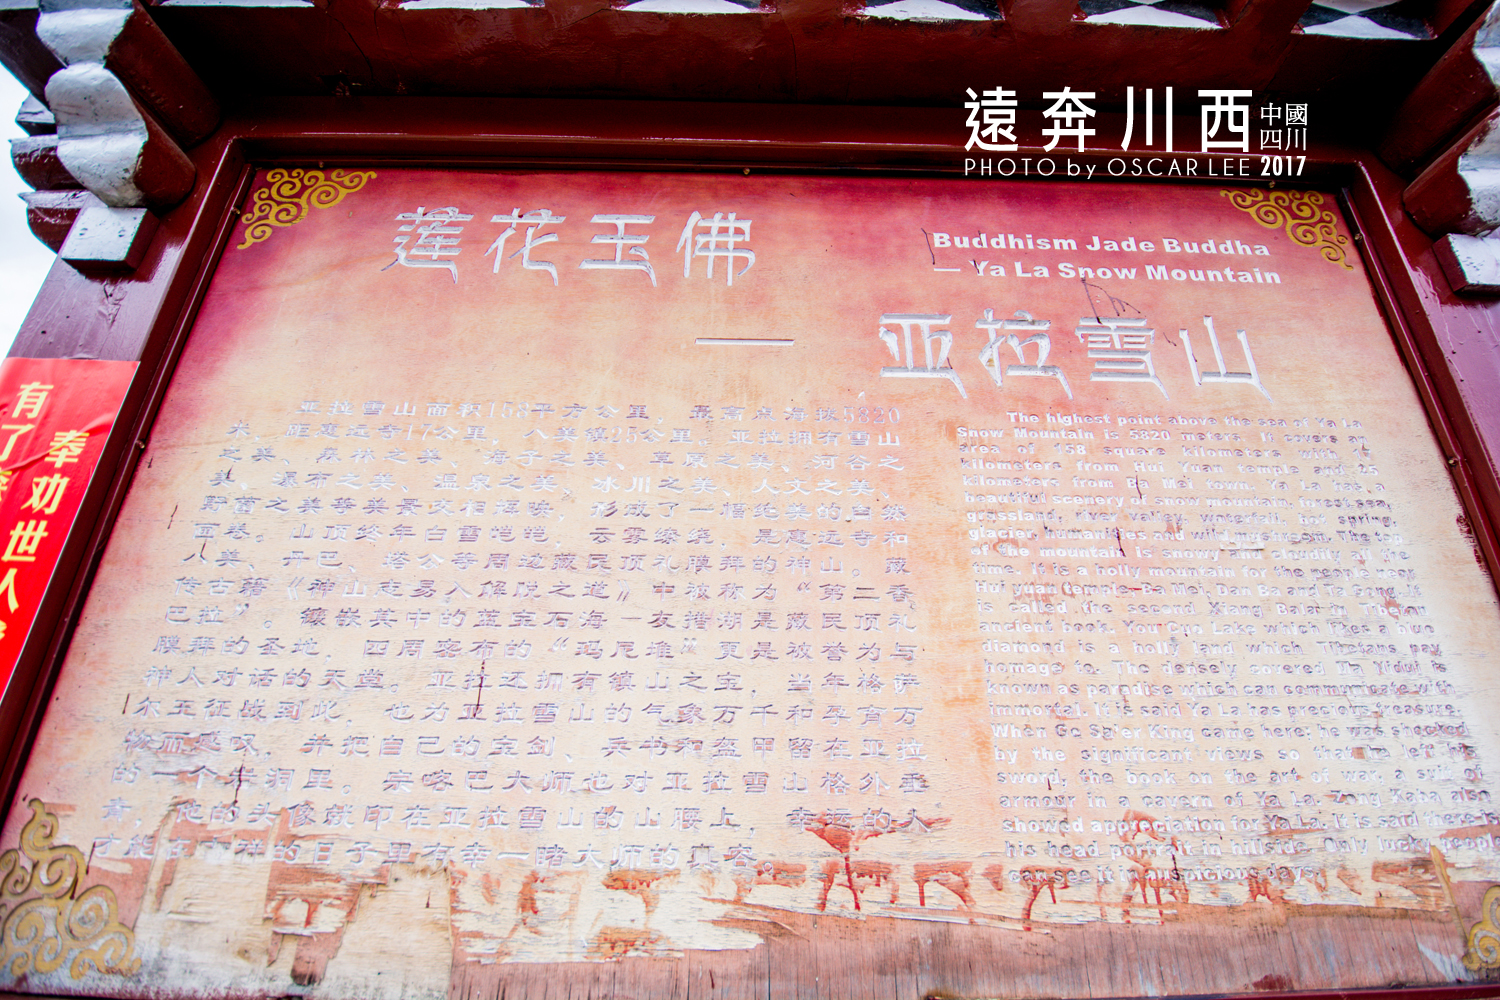 遠奔川西 中國四川
PHOTO by OSCAR LEE 2017
莲花玉佛
Buddhism Jade Buddha
— Ya La Snow Mountain
— 亚拉雪山
有了
奉劝世人
亚拉雪山面积158平方公里，最高点海拔5820
米，距惠远寺17公里，八美镇25公里。亚拉拥有雪山
之美、森林之美、海子之美、草原之美、河谷之
美、瀑布之美、温泉之美、冰川之美、人文之美、
野菌之美等美景交相辉映，形成了一幅绝美的自然
画卷。山顶终年白雪皑皑，云雾缭绕，是惠远寺和
八美、丹巴、塔公等周边藏民顶礼膜拜的神山。藏
传古籍《神山志易入解脱之道》中被称为“第二香
巴拉”。镶嵌其中的蓝宝石海—友措湖是藏民顶礼
膜拜的圣地，四周密布的“玛尼堆”更是被誉为与
神人对话的天堂。亚拉还拥有镇山之宝，当年格萨
尔王征战到此，也为亚拉雪山的气象万千和孕育万
物而感叹，并把自己的宝剑、兵书和盔甲留在亚拉
的一个岩洞里。宗喀巴大师也对亚拉雪山格外垂
青，他的头像就印在亚拉雪山的山腰上，幸运的人
才能在吉祥的日子里有幸一睹大师的真容。
The highest point above the sea of Ya La
Snow Mountain is 5820 meters. It covers an
area of 158 square kilometers with 17
kilometers from Hui Yuan temple and 25
kilometers from Ba Mei town. Ya La has a
beautiful scenery of snow mountain, forest, sea,
grassland, river valley, waterfall, hot spring,
glacier, humanities and wild mushroom. The top
of the mountain is snowy and cloudily all the
time. It is a holly mountain for the people near
Hui yuan temple, Ba Mei, Dan Ba and Ta Gong. It
is called the second Xiang Bala in Tibetan
ancient book. You Cuo Lake which likes a blue
diamond is a holly land which Tibetans pay
homage to. The densely covered Ma Yidui is
known as paradise which can communicate with
immortal. It is said Ya La has precious treasure.
When Ge Sa'er King came here; he was shocked
by the significant views so that he left his
sword, the book on the art of war, a suit of
armour in a cavern of Ya La. Zong Kaba also
showed appreciation for Ya La. It is said there is
his head portrait in hillside. Only lucky people
can see it in auspicious days.